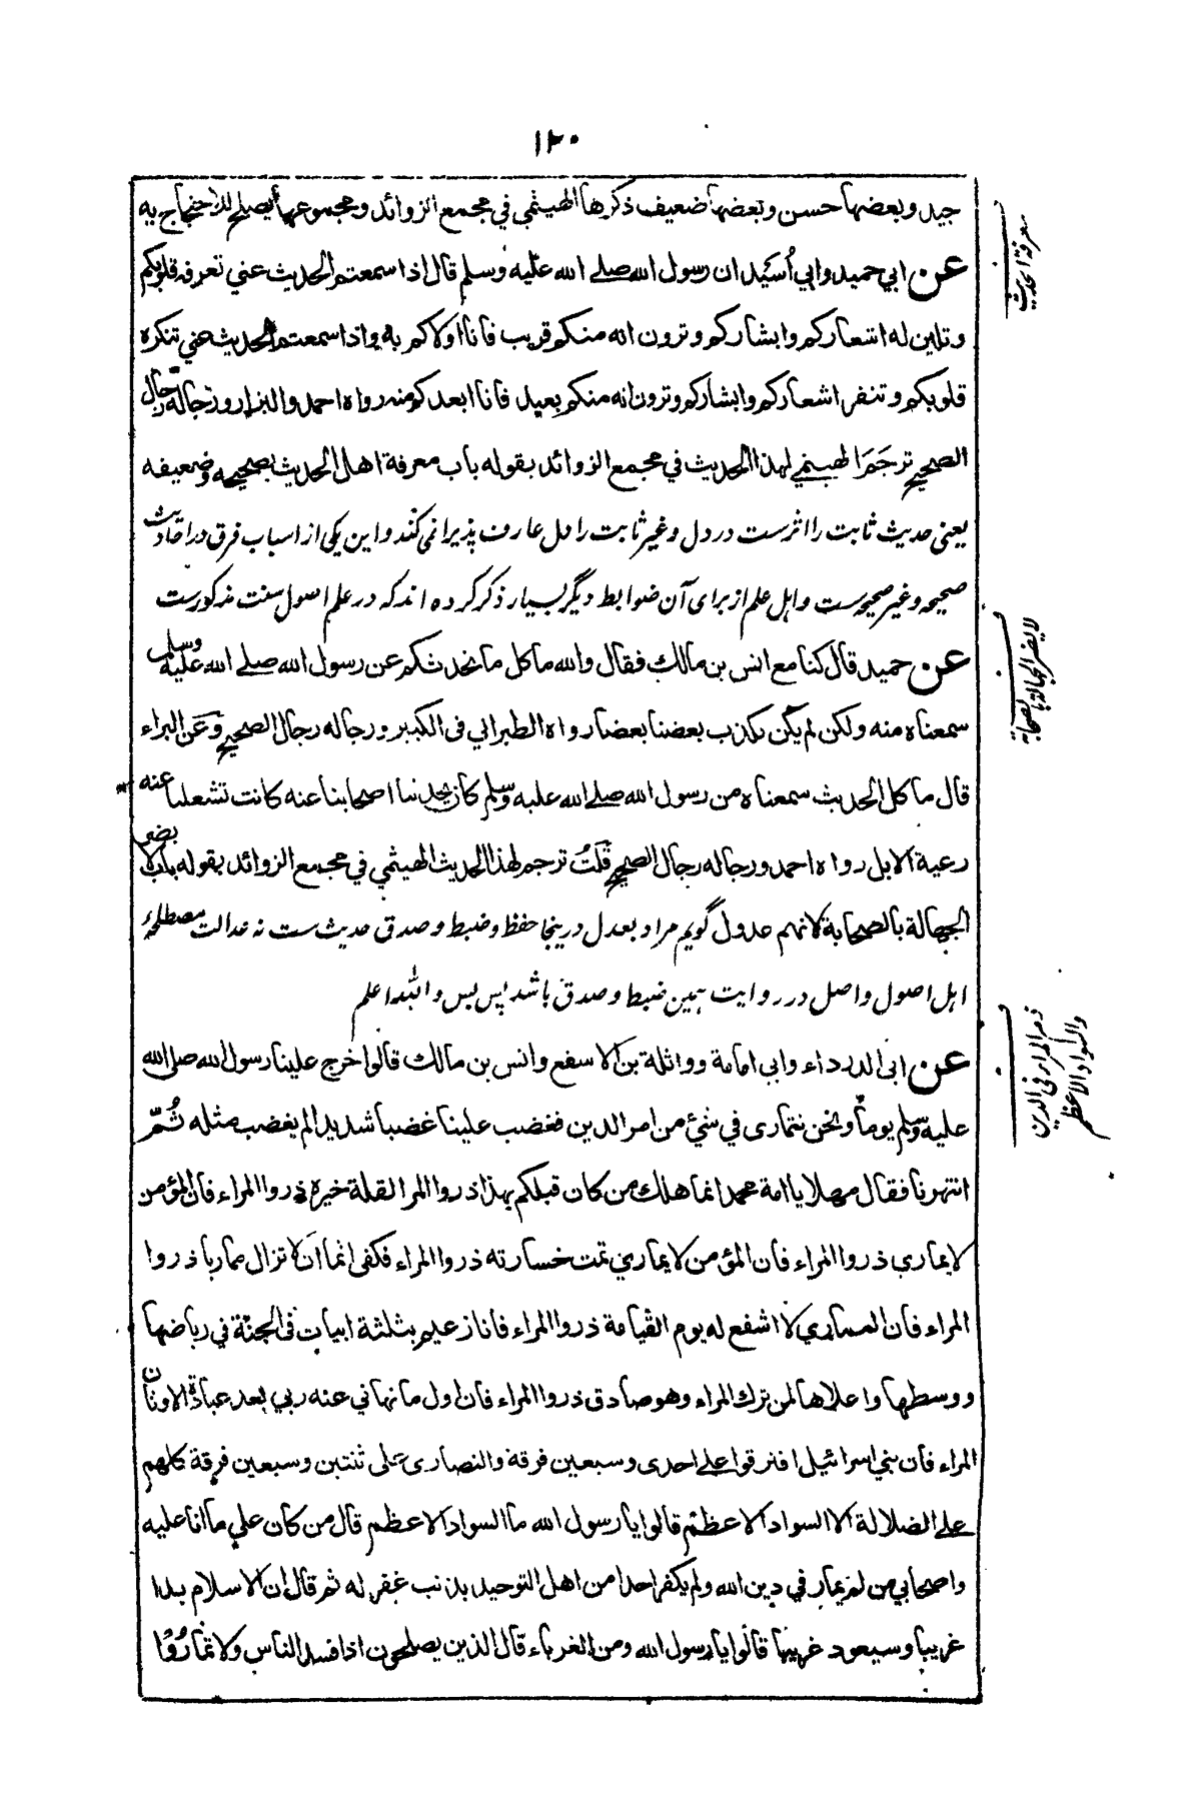 ۱۲۰
جيد وبعضها حسن وبعضها ضعيف ذكرها الهيثمي في مجمع الزوائد ومجموعها يصلح للاحتجاج به
معرفة الحديث
عن ابي حميد وابي أسيد ان رسول الله صلے الله عليه وسلم قال اذا سمعتم الحديث عني تعرفه قلوبكم
وتلين له اشعاركم وابشاركم وترون انه منكم قريب فانا اولاكم به واذا سمعتم الحديث عني تنكره
قلوبكم وتنفر اشعاركم وابشاركم وترون انه منكم بعيد فانا ابعدكم منه رواه احمد والبزار ورجاله رجال
الصحيح ترجم الهيثمي لهذا الحديث في مجمع الزوائد بقوله باب معرفة اهل الحديث بصحيحه وضعيفه
یعنی حدیث ثابت را اثرست در دل و غیر ثابت را دل عارف پذیرا نمی کند و این یکی از اسباب فرق در احادیث
صحیحه و غیر صحیحه ست و اہل علم از برای آن ضوابط دیگر بسیار ذکر کرده اند که در علم اصول سنت مذکورست
لا يضر الجهالة بالصحابة
عن حميد قال كنا مع انس بن مالك فقال والله ما كل ما نحدثكم عن رسول الله صلے الله عليه وسلم
سمعناه منه ولكن لم يكن يكذب بعضنا بعضا رواه الطبراني في الكبير ورجاله رجال الصحيح وعن البراء
قال ما كل الحديث سمعناه من رسول الله صلے الله عليه وسلم كان يحدثنا اصحابنا عنه كانت تشغلنا عنه
رعية الابل رواه احمد ورجاله رجال الصحيح قلت ترجم لهذا الحديث الهيثمي في مجمع الزوائد بقوله باب لا يضر
الجهالة بالصحابة لانهم عدول گویم مراد بعدل درینجا حفظ و ضبط و صدق حدیث ست نه عدالت مصطلحۂ
اہل اصول و اصل در روایت ہمین ضبط و صدق باشد پس بس والله اعلم
ذم المراء في الدين
والسواد الاعظم
عن ابي الدرداء وابي امامة وواثلة بن الاسفع وانس بن مالك قالوا خرج علينا رسول الله صلى الله
عليه وسلم يوما ونحن نتمارى في شئ من امر الدين فغضب علينا غضبا شديدا لم يغضب مثله ثُمّ
انتهرنا فقال مهلا يا امة محمد انما هلك من كان قبلكم بهذا ذروا المرا لقلة خيره ذروا المراء فان المؤمن
لا يماري ذروا المراء فان المؤمن لا يماري تمت خسارته ذروا المراء فكفى اثما ان لا تزال مماريا ذروا
المراء فان المماري لا اشفع له يوم القيامة ذروا المراء فانا زعيم بثلثة ابيات في الجنة في رياضها
ووسطها واعلاها لمن ترك المراء وهو صادق ذروا المراء فان اول ما نهاني عنه ربي بعد عبادة الاوثان
المراء فان بني اسرائيل افترقوا على احدى وسبعين فرقة والنصارى على ثنتين وسبعين فرقة كلهم
على الضلالة الا السواد الاعظم قالوا يا رسول الله ما السواد الاعظم قال من كان علي ما انا عليه
واصحابي من لم يمار في دين الله ولم يكفر احدا من اهل التوحيد بذنب غفر له ثم قال ان الاسلام بدا
غريبا وسيعود غريبا قالوا يا رسول الله ومن الغرباء قال الذين يصلحون اذا فسد الناس ولا تمارُوْا